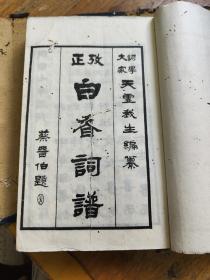 詞學大家天虛我生編纂
考正白香詞譜
蔡晋伯題